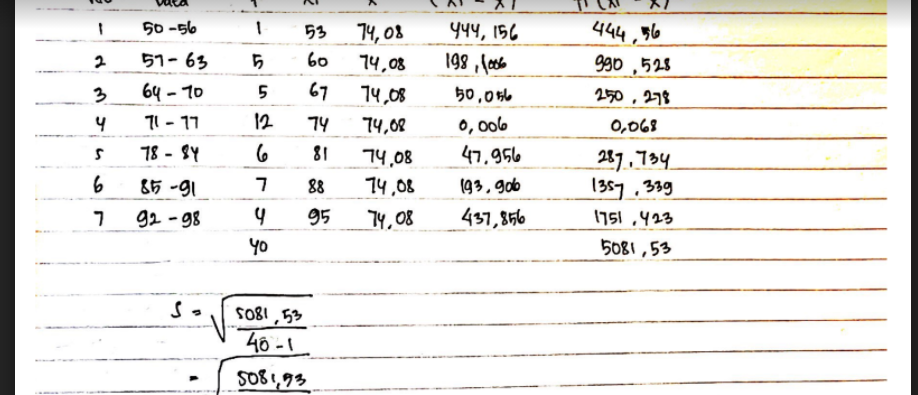 Data
1 50-56 1 53 74,08 444,156 444,56
2 57-63 5 60 74,08 198,1006 990,528
3 64-70 5 67 74,08 50,056 250.278
4 71-77 12 74 74,08 0,006 0,068
5 78-84 6 81 74,08 47,956 287,734
6 85-91 7 88 74,08 193,906 1357,339
7 92-98 4 95 74,08 437,856 1751,423
40 5081,53
S = √ 5081,53
40-1
= √ 5081,53